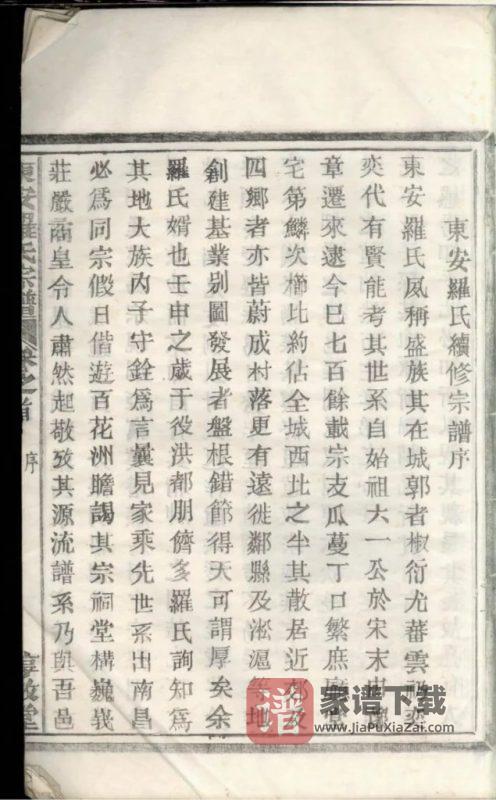 東安羅氏續修宗譜序
東安羅氏夙稱盛族其在城郭者椒衍尤蕃雲礽
奕代有賢能考其世系自始祖大一公於宋末由
章遷來逮今已七百餘載宗支瓜蔓丁口繁庶
宅第鱗次櫛比約佔全城西北之半其散居近郊及
四鄉者亦皆蔚成村落更有遠徙鄰縣及淞滬等地
創建基業别圖發展者盤根錯節得天可謂厚矣余
羅氏婿也壬申之歲于役洪都朋儕多羅氏詢知爲
其地大族內子守銓爲言曩見家乘先世系出南昌
必爲同宗假日偕遊百花洲瞻謁其宗祠堂構巍峩
莊嚴矞皇令人肅然起敬攷其源流譜系乃與吾邑
東安羅氏宗譜
卷之首
序
惇敘堂
譜
家谱下载
www.jiaPuXiaZai.com